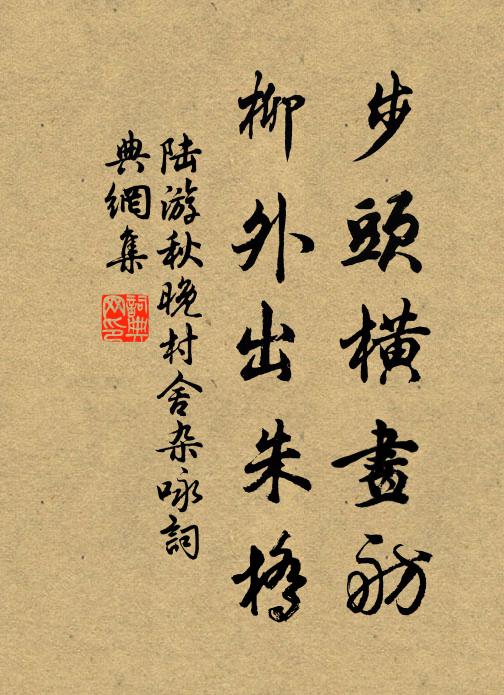 步頭橫畫舫
柳外出朱橋
陆游秋晚村舍杂咏詞
典網集
詞典网印